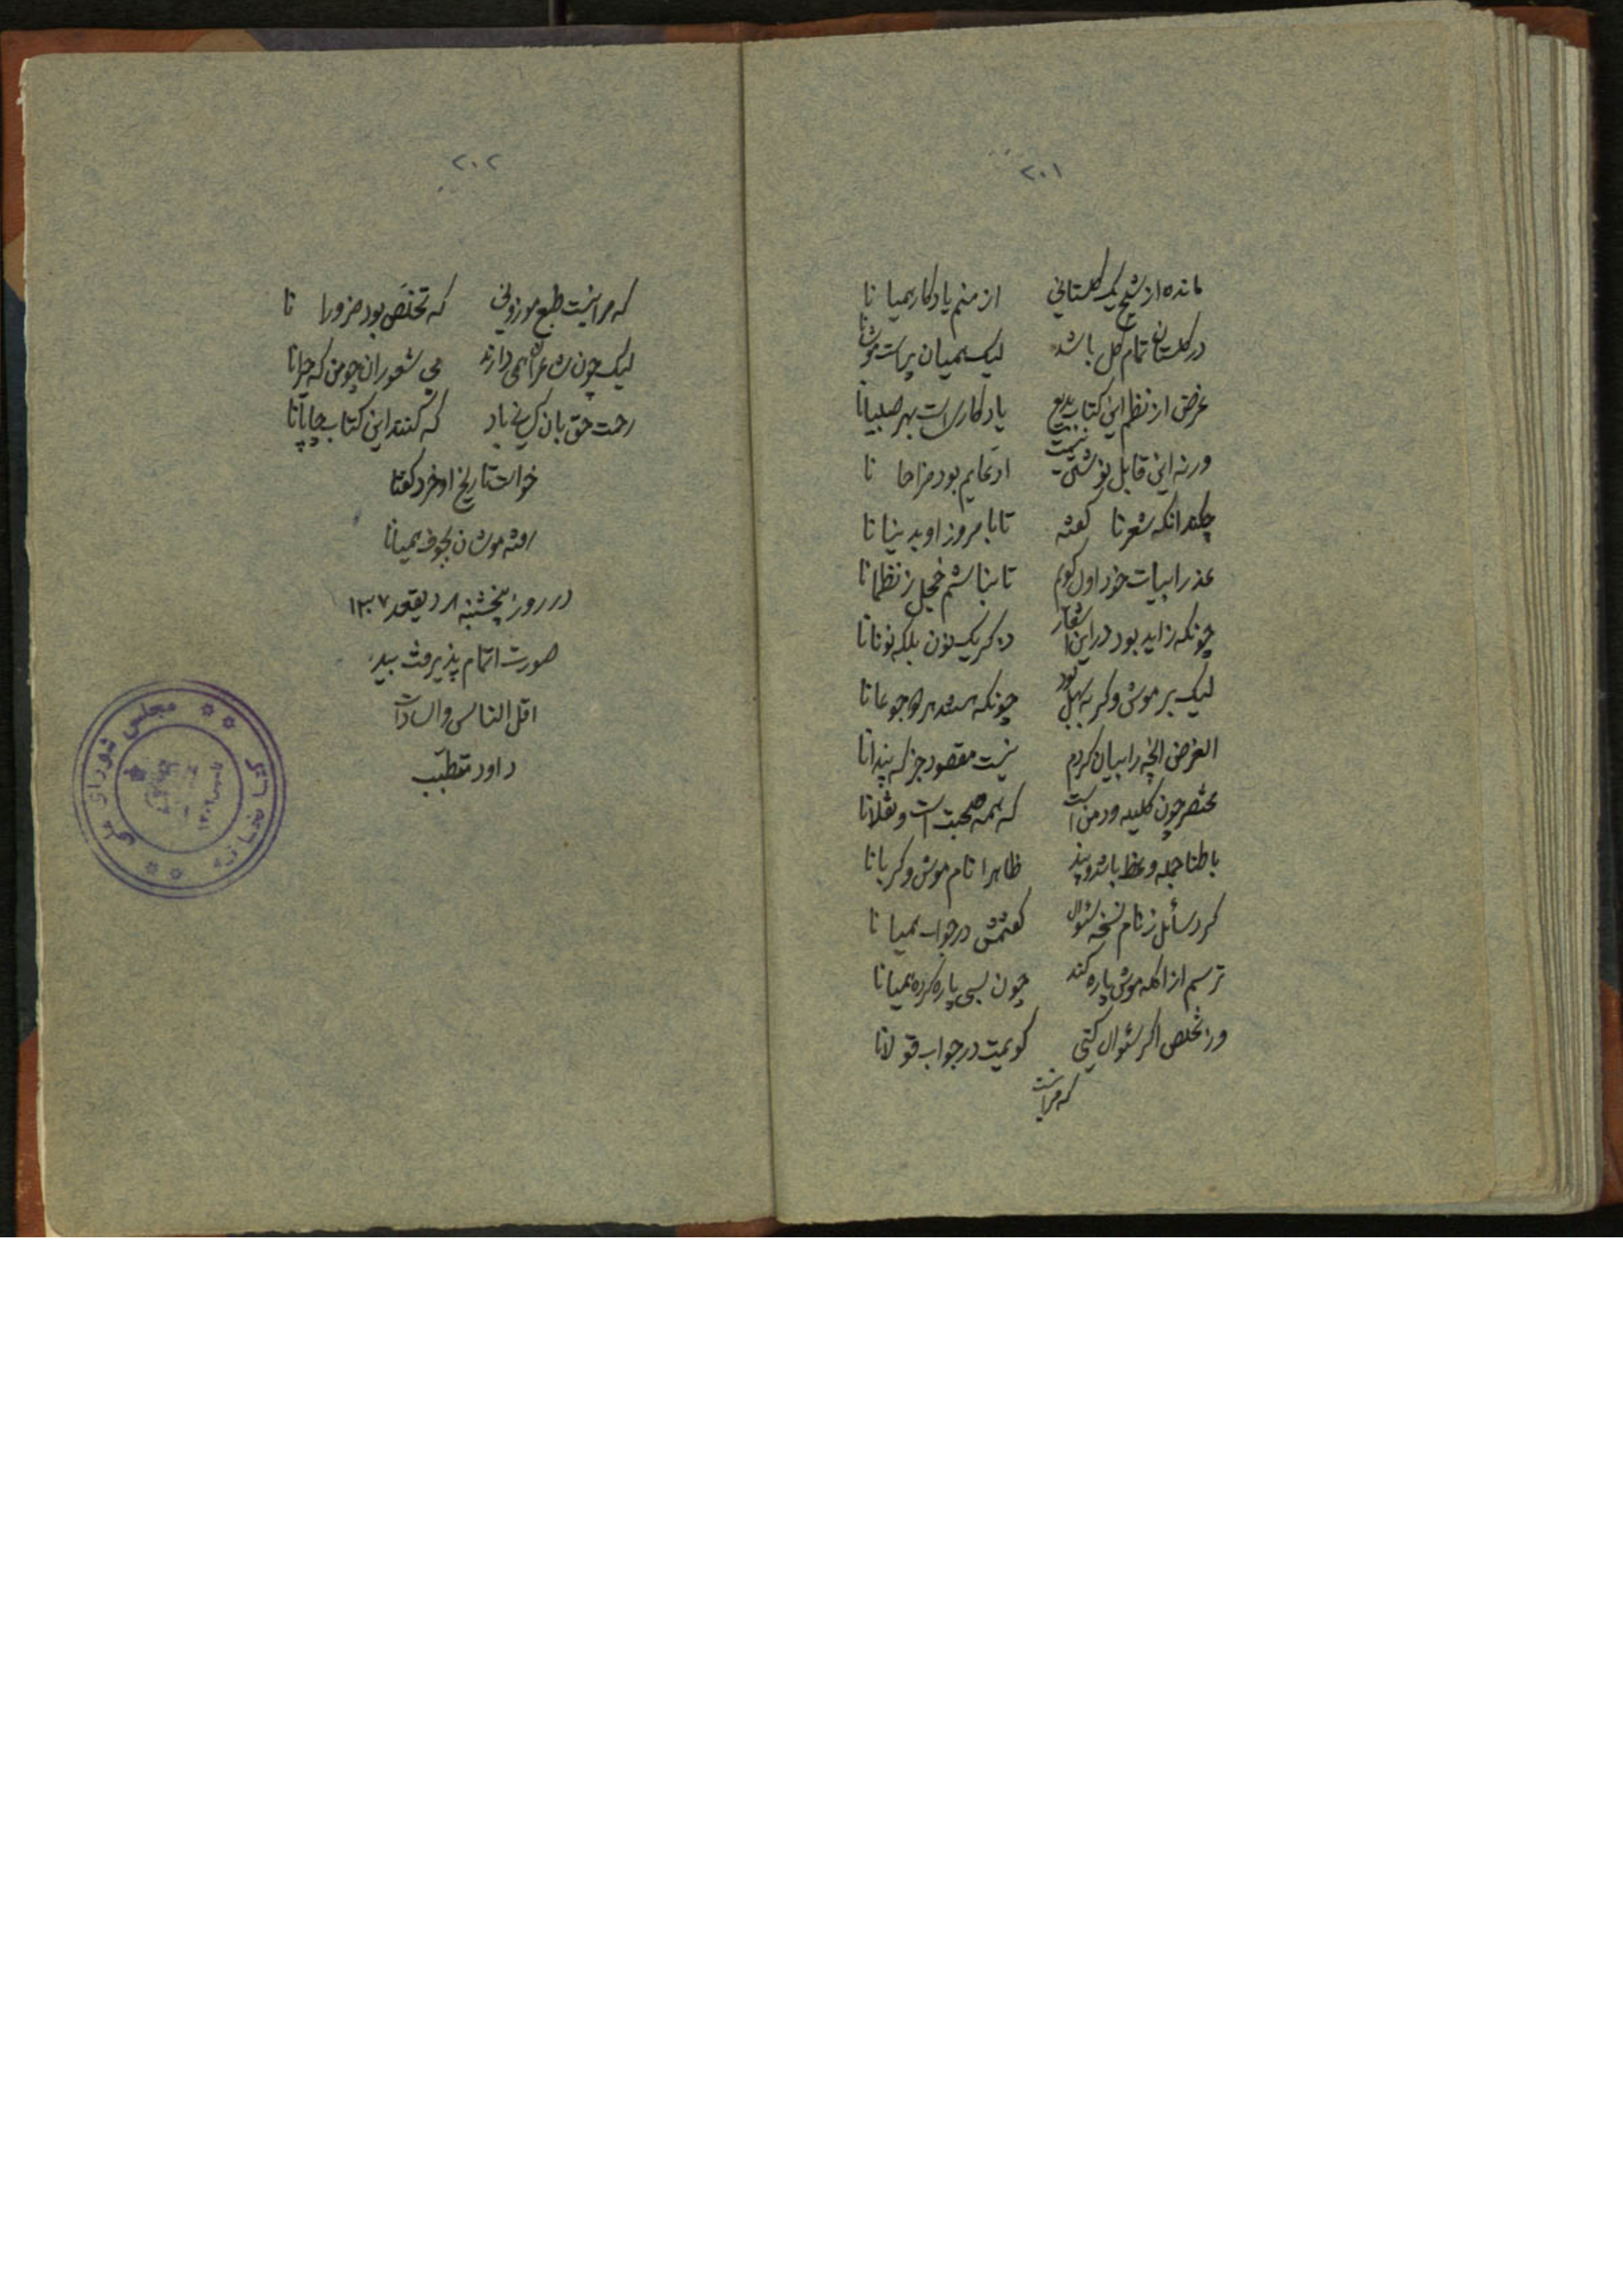 ۲۰۱
مانده از شیخ یک گلستانی از منم یادکار همیانا
در گلستان تمام گل باشد لیک همیان پر است موشانا
غرض از نظم این کتاب بدیع یادکاری است بهر صبیانا
ورنه این قابل نوشتن نیست ادعایم بود مزاحانا
چکند آنکه شعرنا گفته تا بامروز او بدینانا
عذر ابیات خود اول گویم تا نباشم خجل ز نظمانا
چونکه زاید بود در این اشعار ذکر یک نون بلکه نونانا
لیک بر موش و گربه سهل بود چونکه هستند هر دو جوعانا
الغرض آنچه را بیان کردم نیست مقصود جز که پندانا
مختصر چون کلیله ودمن است که همه صحبت است و نقلانا
باطنا جمله وعظ باشد و پند ظاهرا نام موش و گربانا
کرد سائل ز نام نسخه سئوال گفتمش در جواب همیانا
ترسم از آنکه موش پاره کند چون بسی پاره کرده همیانا
ور تخلص اگر سئوال کنی گویمت در جواب قولانا
که مرانیست
۲۰۲
که مرا نیست طبع موزونی که تخلص بود ضرورانا
لیک چون شاعران همی دارند بی شعوران چو من که حیرانا
رحمت حق بان کسانی باد که کنند این کتاب چاپانا
خواست تاریخ او خرد گفتا
رفته موشان بجوف همیانا
در روز پنجشنبه ۸ ذیقعد ۱۳۰۷
صورت اتمام پذیرفت بید
اقل الناس والسادات
داود متطبّب
مجلس شورای ملی
کتابخانه